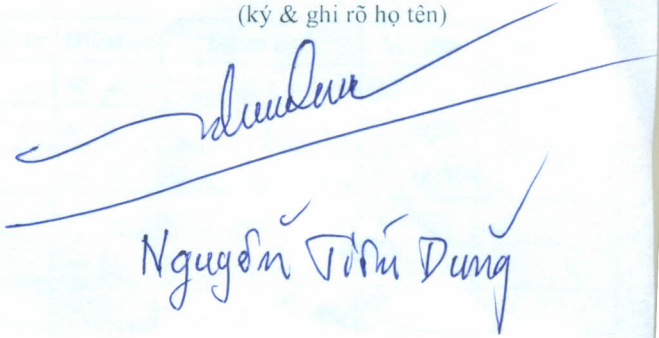 (ký & ghi rõ họ tên)
Nguyễn Tiến Dũng